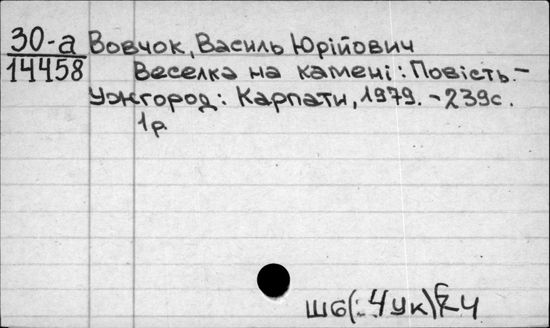 30-а Вовчок, Василь Юрійович
14458 Веселка на камені: Повість.-
Ужгород: Карпати, 1979. - 239с.
1р.
Ш6(:4Ук)